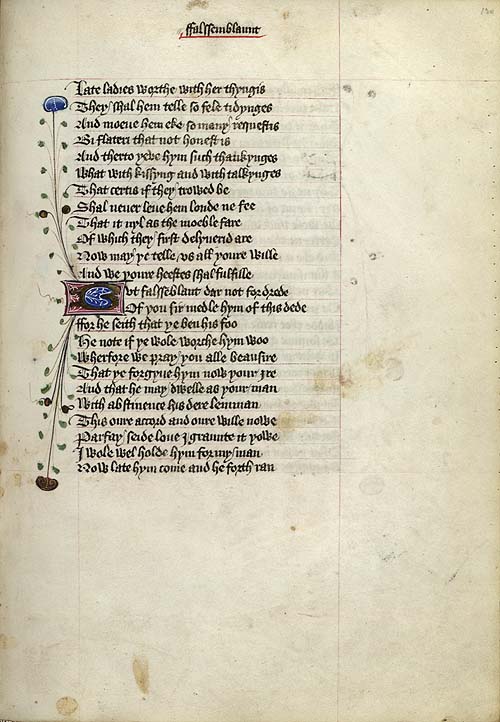 ffalssemblaunt
Late ladies worthe with her thyngis
They shal hem telle so fele tidynges
And moeue hem eke so many requestis
Bi flateri that not honest is
And therto yeve hym such thankynges
What with kissyng and with talkynges
That certis if they trowed be
Shal neuer leue hem londe ne fee
That it nyl as the moeble fare
Of which they first delyuerid are
Now may ye telle vs all youre wille
And we youre heestes shal fulfille
But falssēblaunt dar not for drede
Of you sir medle hym of this dede
ffor he seith that ye ben his foo
He note if ye wole worche hym woo
Wherfore we pray you alle beausire
That ye forgyue hym now your Ire
And that he may dwelle as your man
With abstinence his dere lemman
This oure accord and oure wille nowe
Parfay seide loue I graunte it yowe
I wole wel holde hym for my man
Now late hym come and he forth ran